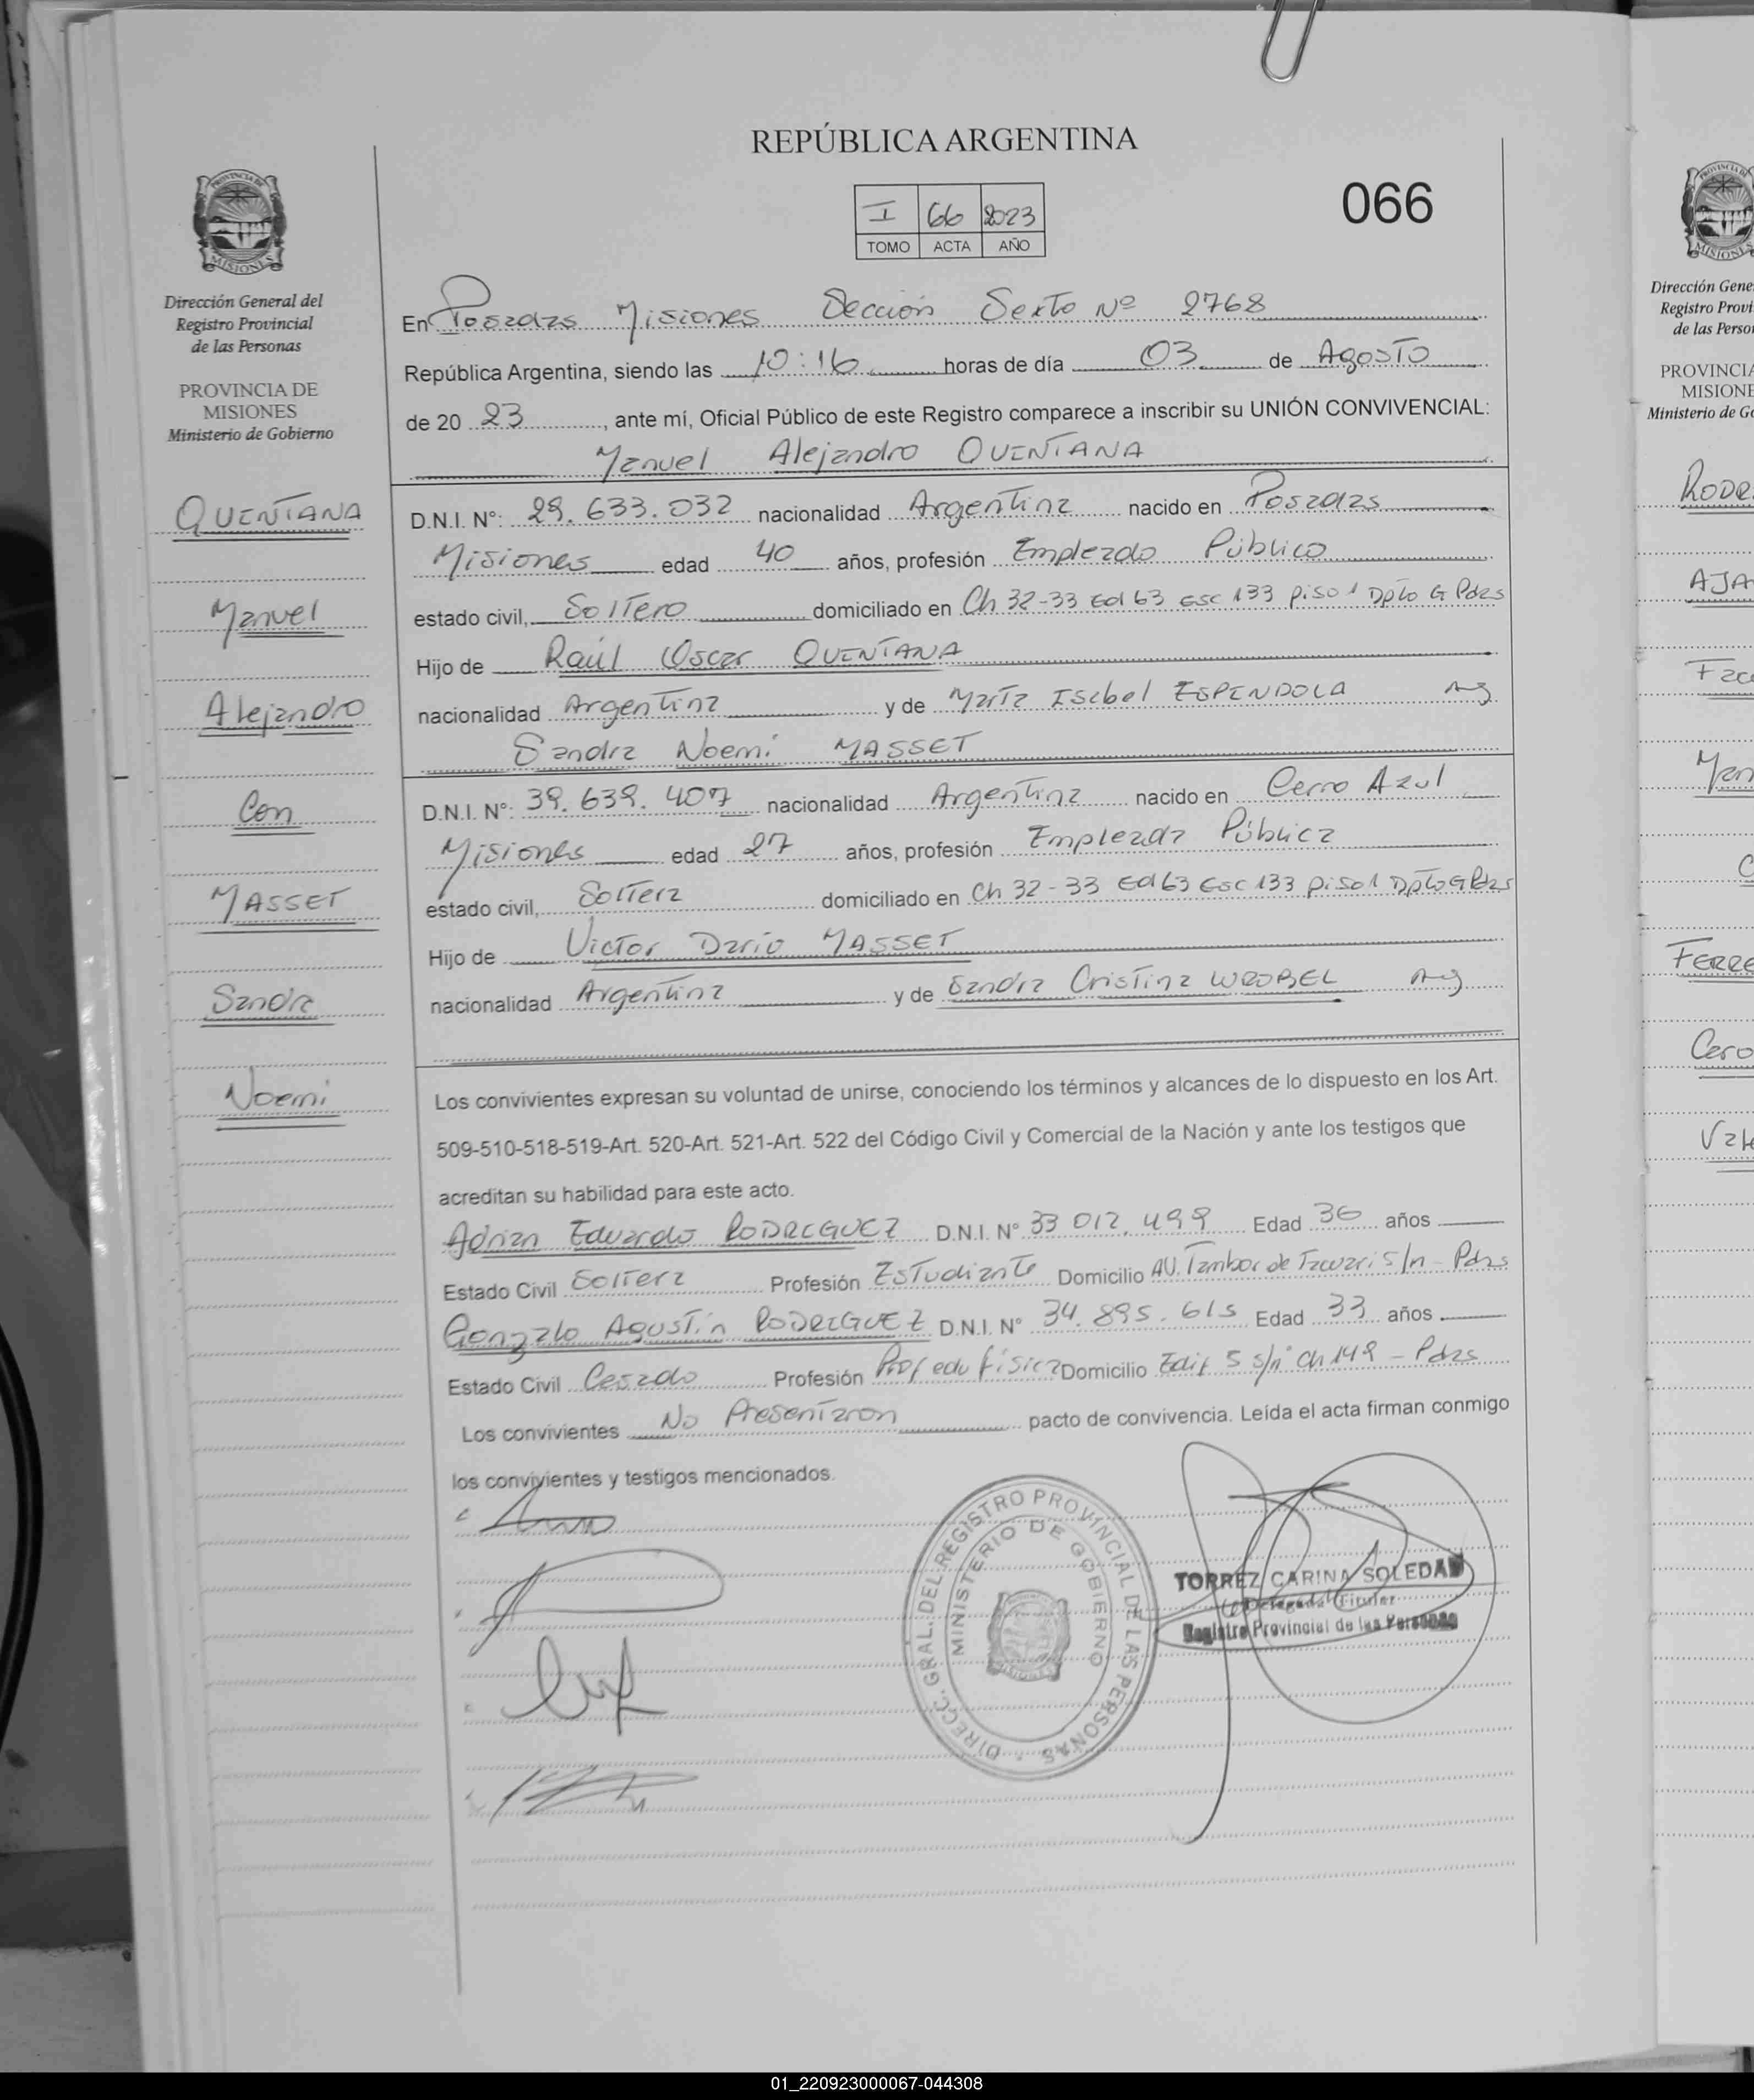 REPÚBLICA ARGENTINA
066
I 66 2023
TOMO ACTA AÑO
PROVINCIA DE MISIONES
Dirección General del
Registro Provincial
de las Personas
PROVINCIA DE
MISIONES
Ministerio de Gobierno
QUINTANA
Manuel
Alejandro
Con
MASSET
Sandra
Noemi
En Posadas Misiones Sección Sexto Nº 2768
República Argentina, siendo las 10:16 horas de día 03 de Agosto
de 20 23, ante mí, Oficial Público de este Registro comparece a inscribir su UNIÓN CONVIVENCIAL:
Manuel Alejandro QUINTANA
D.N.I. Nº: 29.633.032 nacionalidad Argentina nacido en Posadas
Misiones edad 40 años, profesión Empleado Público
estado civil, Soltero domiciliado en Ch 32-33 Ed 63 Esc 133 piso 1 Dpto G Pdas
Hijo de Raúl Oscar QUINTANA
nacionalidad Argentina y de María Isabel ESPINDOLA Arg
Sandra Noemi MASSET
D.N.I. Nº: 39.639.407 nacionalidad Argentina nacido en Cerro Azul
Misiones edad 27 años, profesión Empleada Pública
estado civil, Soltera domiciliado en Ch 32-33 Ed 63 Esc 133 piso 1 Dpto G Pdas
Hijo de Victor Dario MASSET
nacionalidad Argentina y de Sandra Cristina WROBEL Arg
Los convivientes expresan su voluntad de unirse, conociendo los términos y alcances de lo dispuesto en los Art.
509-510-518-519-Art. 520-Art. 521-Art. 522 del Código Civil y Comercial de la Nación y ante los testigos que
acreditan su habilidad para este acto.
Adrian Eduardo RODRIGUEZ D.N.I. Nº 33 012.499 Edad 36 años
Estado Civil Soltera Profesión Estudiante Domicilio AV. Tambor de Tacuari S/n - Pdas
Gonzalo Agustín RODRIGUEZ D.N.I. Nº 34.895.615 Edad 33 años
Estado Civil Casado Profesión Prof edu física Domicilio Edif 5 s/nº Ch 149 - Pdas
Los convivientes No Presentaron pacto de convivencia. Leída el acta firman conmigo
los convivientes y testigos mencionados.
DIRECC. GRAL. DEL REGISTRO PROVINCIAL DE LAS PERSONAS
MINISTERIO DE GOBIERNO
TORREZ CARINA SOLEDAD
Delegada Titular
Registro Provincial de las Personas
Dirección Gene
Registro Provi
de las Perso
PROVINCIA
MISIONE
Ministerio de Go
RODR
AJA
Man
C
FERRE
Caro
01_220923000067-044308